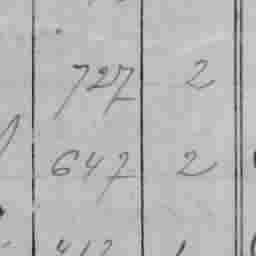 727 2
647 2